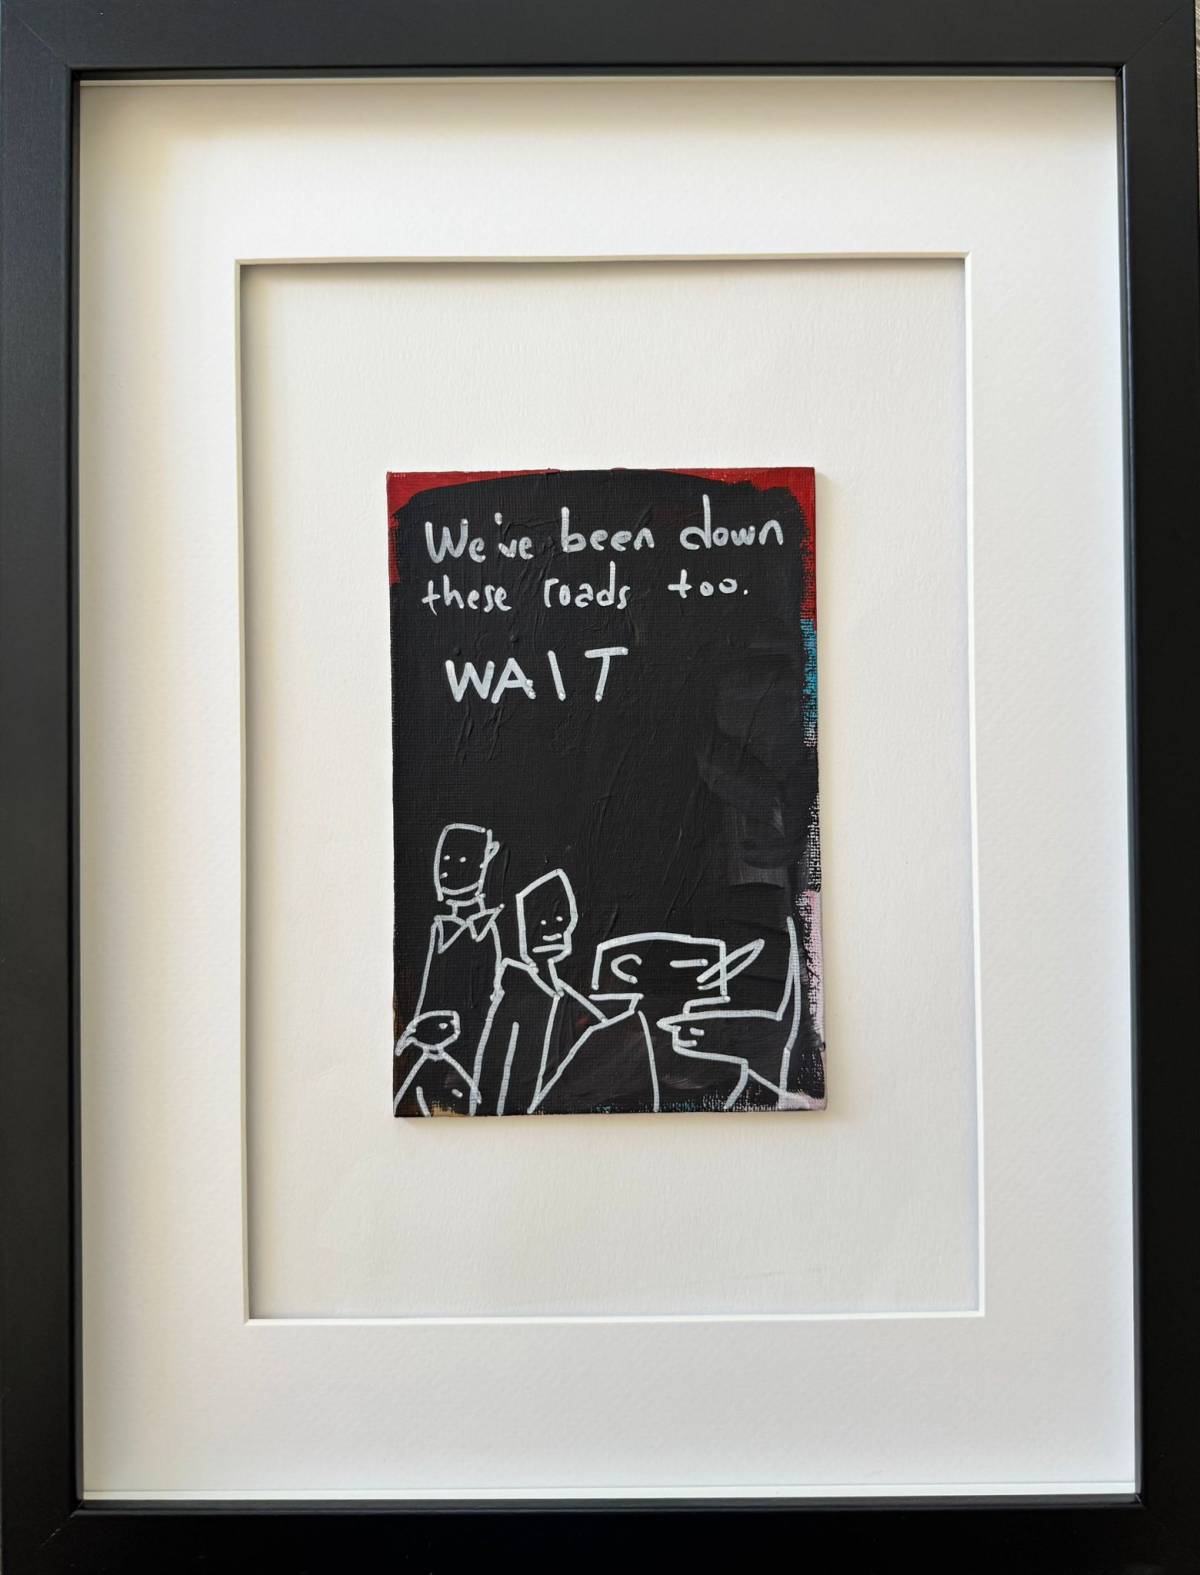 We've been down
these roads too.
WAIT